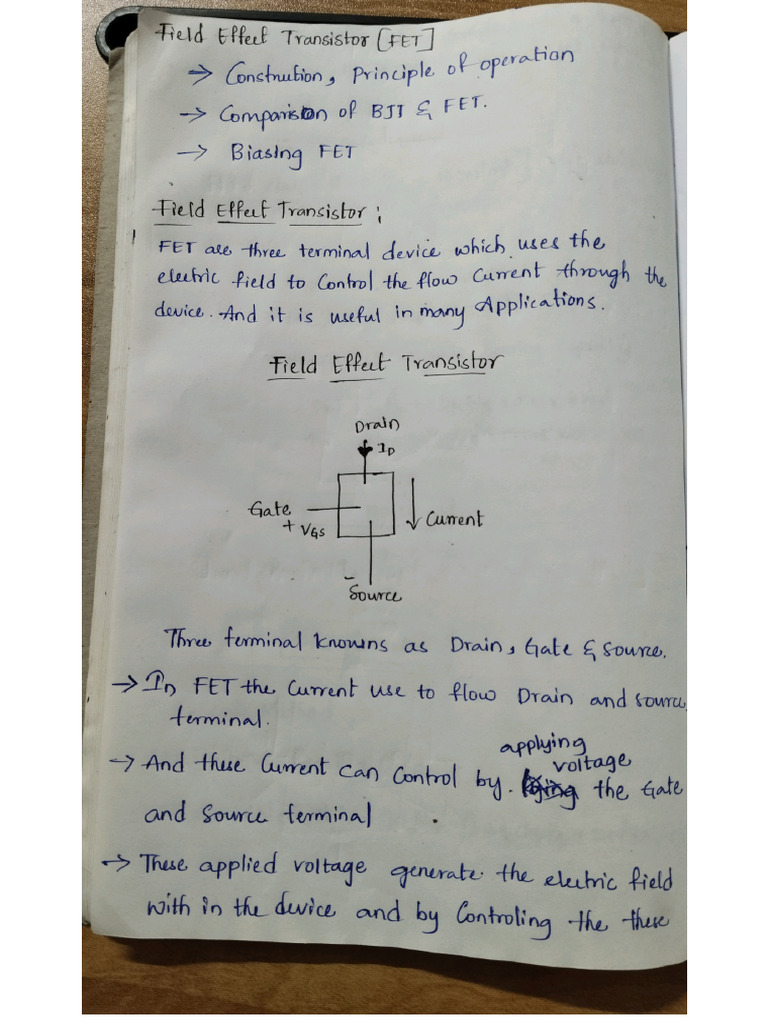 Field Effect Transistor [FET]
→ Constrution, Principle of operation
→ Comparison of BJT & FET.
→ Biasing FET
Field Effect Transistor :
FET are three terminal device which uses the
electric field to Control the flow Current through the
device. And it is useful in many Applications.
Field Effect Transistor
Drain
I_D
Gate
+ V_GS
Current
-
Source
Three terminal knowns as Drain, Gate & Source.
→ In FET the Current use to flow Drain and source
terminal.
applying
→ And these Current can Control by. voltage the Gate
and Source terminal
→ These applied voltage generate the electric field
with in the device and by Controling the these